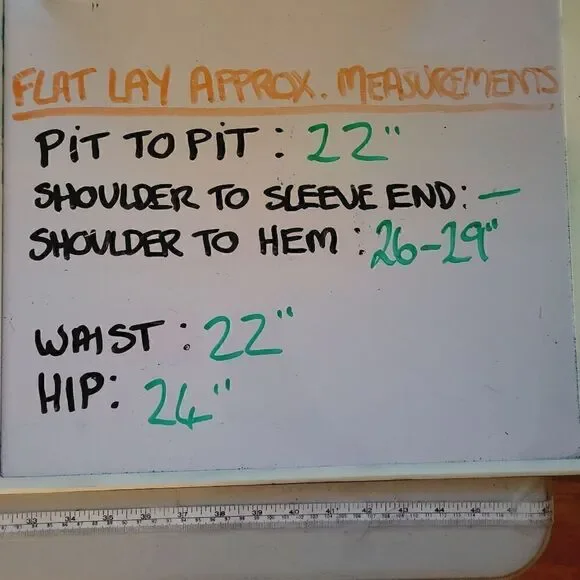 FLAT LAY APPROX. MEASUREMENTS
PIT TO PIT : 22"
SHOULDER TO SLEEVE END: —
SHOULDER TO HEM : 26-29"
WAIST : 22"
HIP: 24"
33 34 35 36 37 38 39 40 41 42 43 44 45 46